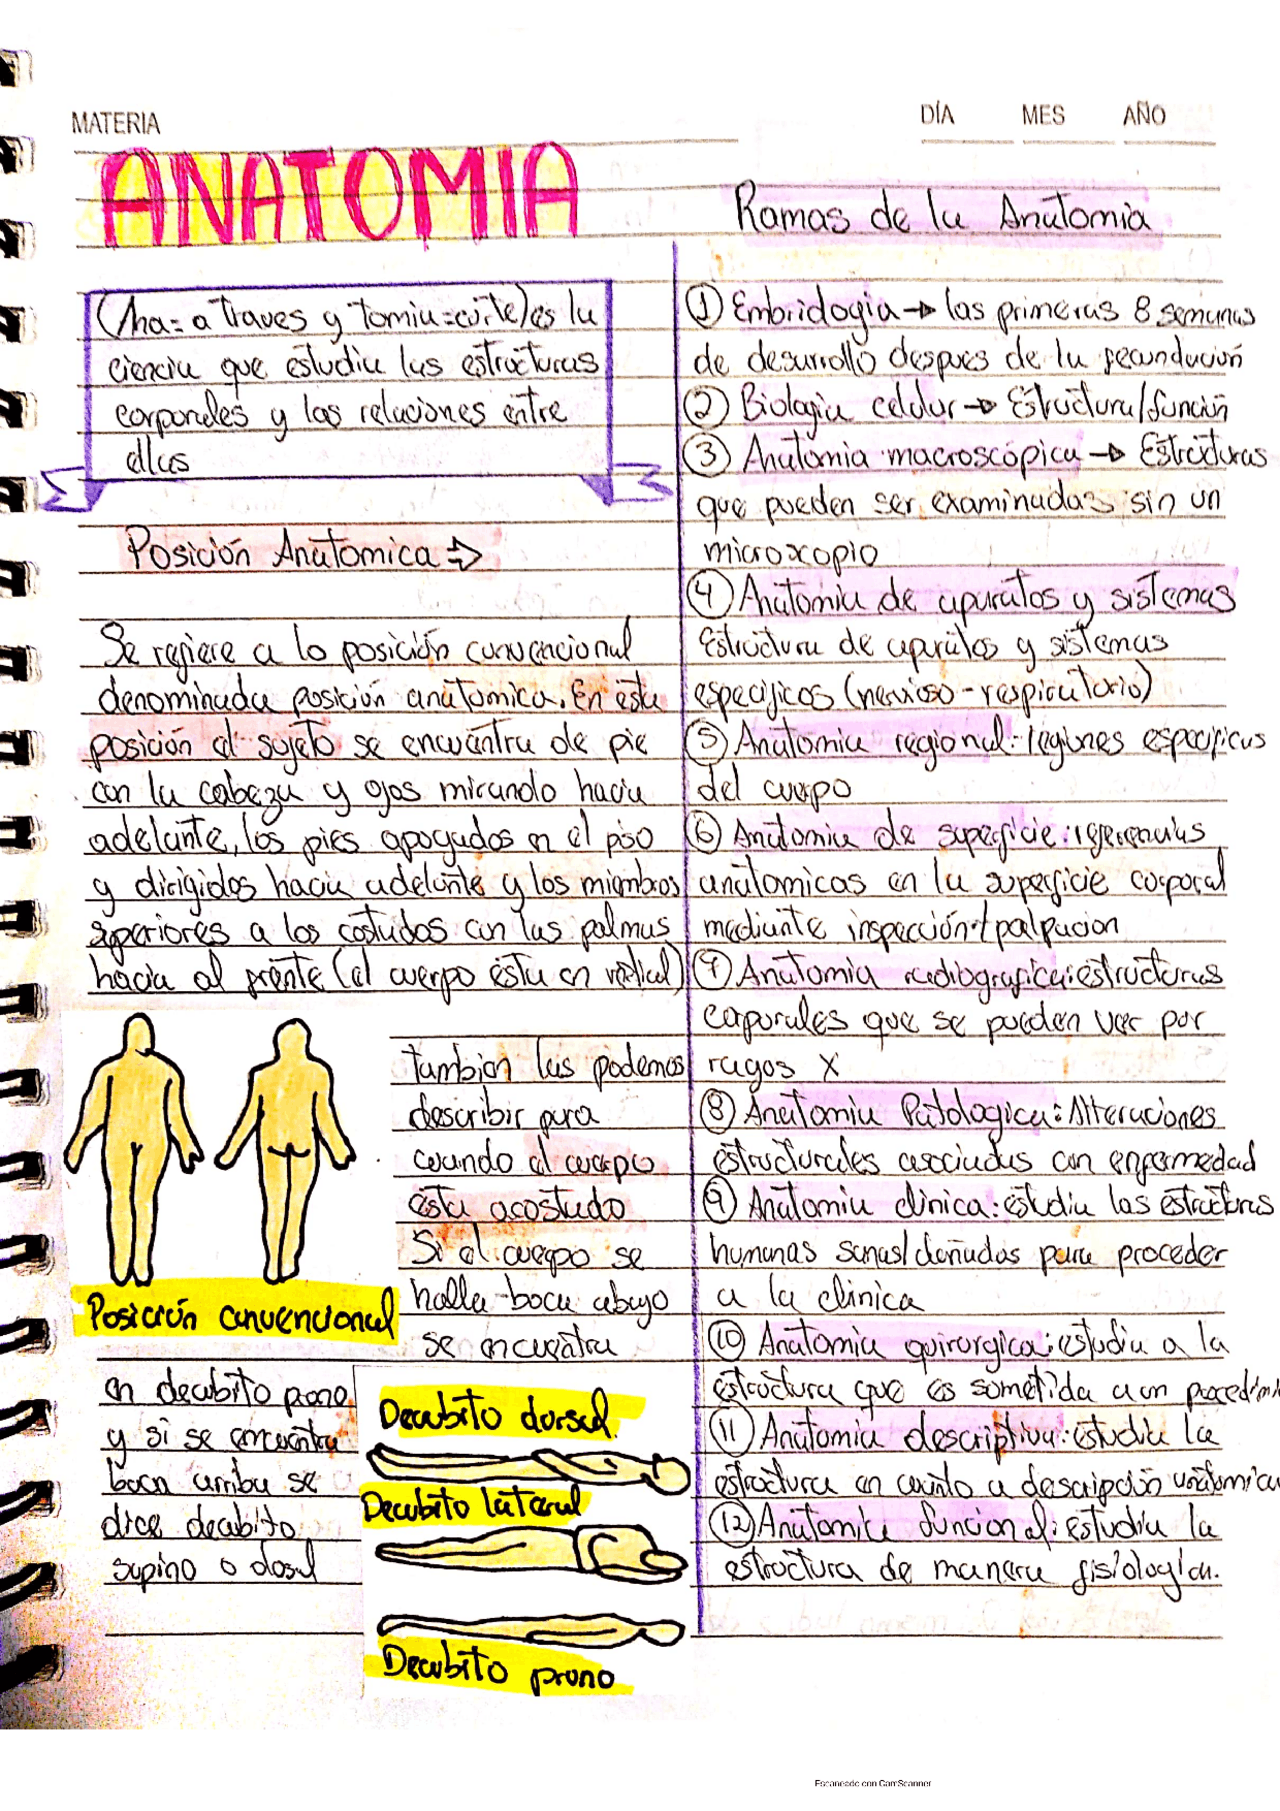 MATERIA
DÍA MES AÑO
ANATOMIA
(Ana= a traves y tomia=corte) es la
ciencia que estudia las estructuras
corporales y las relaciones entre
ellas
Posición Anatomica ⇒
Se refiere a lo posición convencional
denominada posición anatomica. En esta
posición el sujeto se encuentra de pie
con la cabeza y ojos mirando hacia
adelante, los pies apoyados en el piso
y dirigidos hacia adelante y los miembros
superiores a los costados con las palmas
hacia al frente (el cuerpo esta en vertical)
Posición convencional
tambien las podemos
describir para
cuando el cuerpo
esta acostado
Si el cuerpo se
halla boca abajo
se encuentra
en decubito prono
y si se encuentra
boca arriba se
dice decubito
supino o dosal
Decubito dorsal.
Decubito lateral
Decubito prono
Ramas de la Anatomia
① Embridogia → las primeras 8 semanas
de desarrollo despues de la fecundación
② Biologia celular → Estructura/función
③ Anatomia macroscópica → Estructuras
que pueden ser examinadas sin un
microxcopio
④ Anatomia de aparatos y sistemas
Estructura de aparatos y sistemas
especificos (nervioso-respiratorio)
⑤ Anatomia regional: regiones especificas
del cuerpo
⑥ Anatomia de superficie: referencias
anatomicas en la superficie corporal
mediante inspección+/palpacion
⑦ Anatomia radiografica: estructuras
corporales que se pueden ver por
rayos X
⑧ Anatomia Patologica: Alteraciones
estructurales asociadas con enfermedad
⑨ Anatomia clinica: estudia las estructuras
humanas sanas/dañadas para proceder
a la clinica
⑩ Anatomia quirurgica: estudia a la
estructura que es sometida a un procedimi
⑪ Anatomia descriptiva: estudia la
estructura en cuanto a descripción anatomica
⑫ Anatomia funcional: Estudia la
estructura de manera fisiologica.
Escaneado con CamScanner